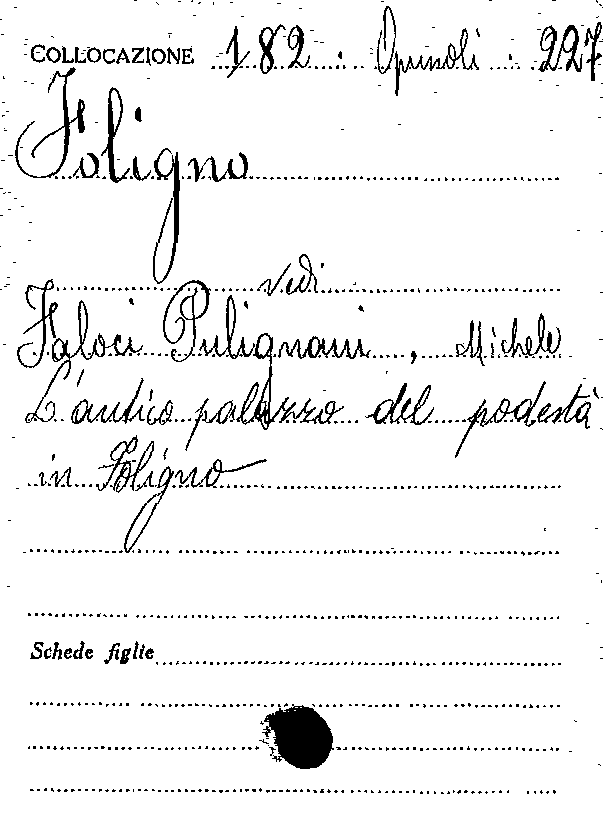 COLLOCAZIONE 182. Opuscoli. 227
Foligno
vedi
Faloci Pulignani, Michele
L'antico palazzo del podestà
in Foligno
Schede figlie